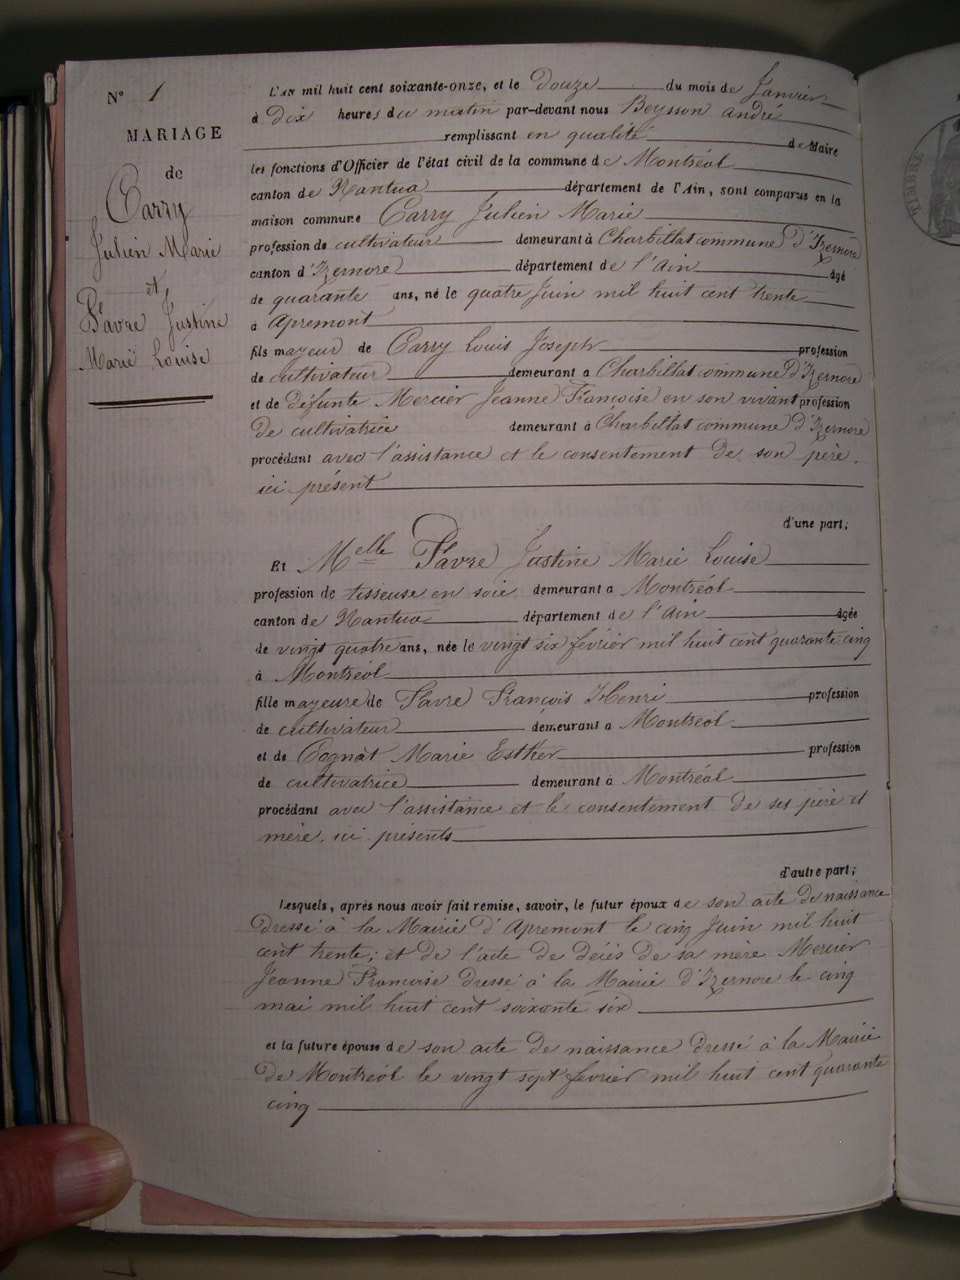 N° 1
MARIAGE
de
Carry
Julien Marie
et
Favre Justine
Marie Louise
L'an mil huit cent soixante-onze, et le Douze du mois de Janvier
à Dix heures du matin par-devant nous Beysson André
remplissant en qualité de Maire
les fonctions d'Officier de l'état civil de la commune de Montréal
canton de Nantua département de l'Ain, sont comparus en la
maison commune Carry Julien Marie
profession de cultivateur demeurant à Charbillat commune d'Izernore
canton d'Izernore département de l'ain âgé
de quarante ans, né le quatre Juin mil huit cent trente
à Apremont
fils majeur de Carry Louis Joseph profession
de cultivateur demeurant à Charbillat commune d'Izernore
et de défunte Mercier Jeanne Françoise en son vivant profession
De cultivatrice demeurant à Charbillat commune d'Izernore
procédant avec l'assistance et le consentement de son père.
ici présent
d'une part;
Et Melle Favre Justine Marie Louise
profession de tisseuse en soie demeurant à Montréal
canton de Nantua département de l'Ain âgée
de vingt quatre ans, née le vingt six février mil huit cent quarante cinq
à Montréal
fille majeure de Favre François Henri profession
de cultivateur demeurant à Montréal
et de Cognat Marie Esther profession
de cultivatrice demeurant à Montréal
procédant avec l'assistance et le consentement de ses père et
mère, ici présents
d'autre part;
Lesquels, après nous avoir fait remise, savoir, le futur époux de son acte de naissance
Dressé à la Mairie d'Apremont le cinq Juin mil huit
cent trente; et de l'acte de décès de sa mère Mercier
Jeanne Francoise dressé à la Mairie d'Izernore le cinq
mai mil huit cent soixante six
et la future épouse de son acte de naissance dressé à la Mairie
De Montréal le vingt sept février mil huit cent quarante
cinq
TIMBRE